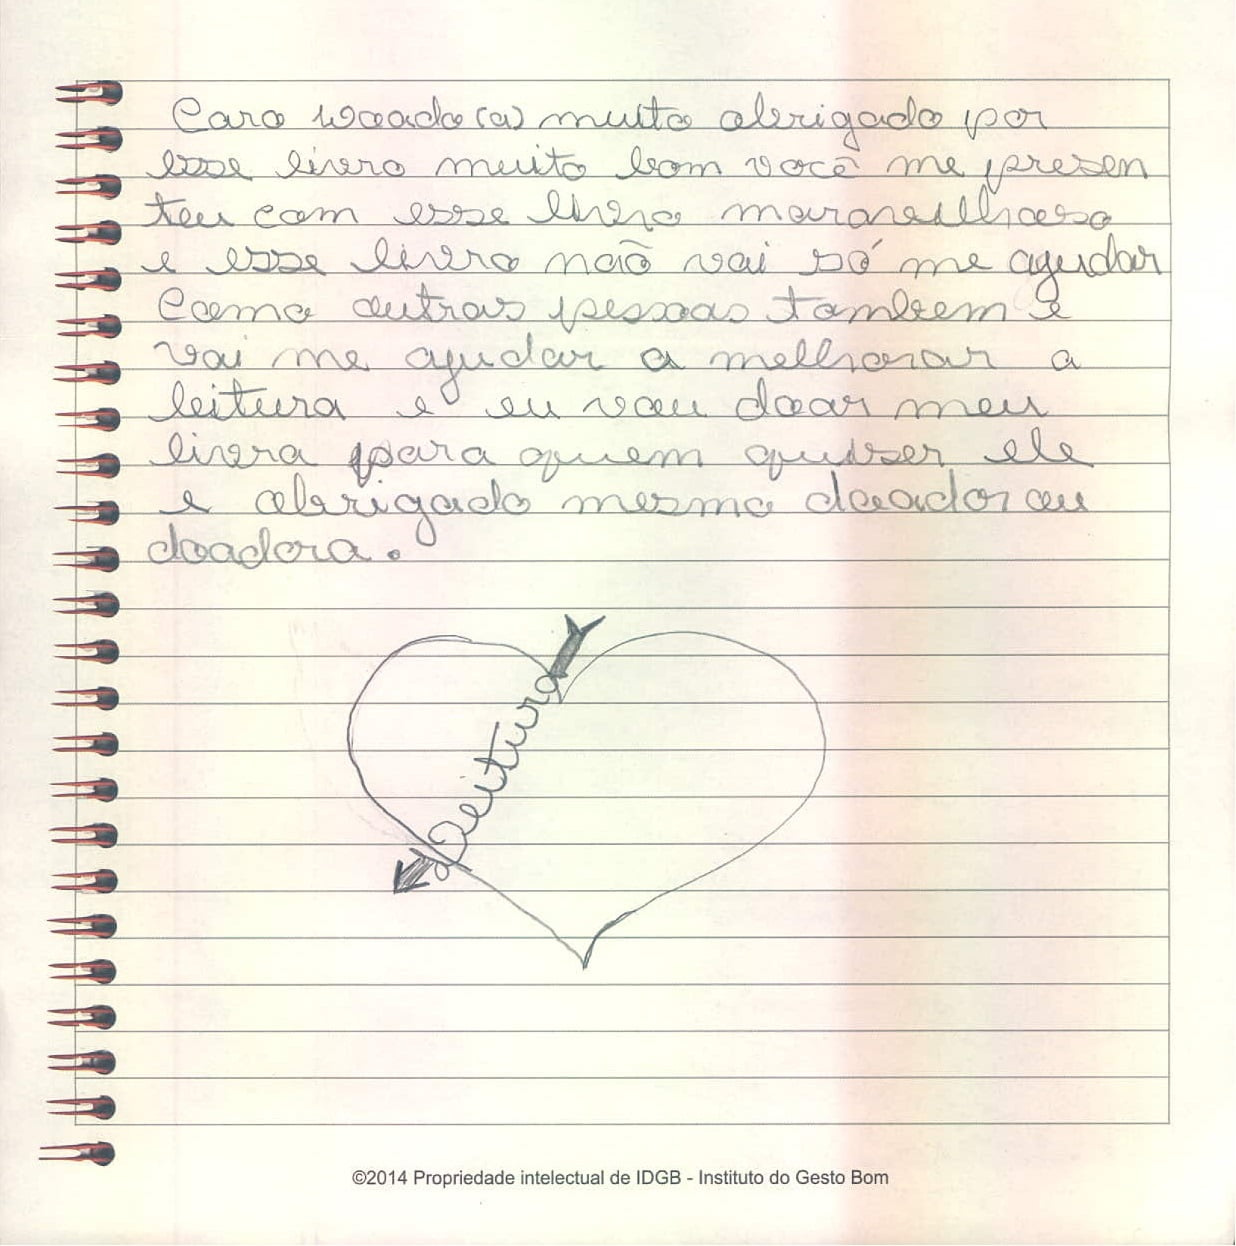 Caro woado(a) muito obrigado por
esse livro muito bom você me presen
teu com esse livro maravilhoso
e esse livro não vai só me ajudar
Como outras pessoas tambem e
vai me ajudar a melhorar a
leitura e eu vou doar meu
livra para quem quiser ele
e obrigado mesmo doador ou
doadora.
Leitura
©2014 Propriedade intelectual de IDGB - Instituto do Gesto Bom